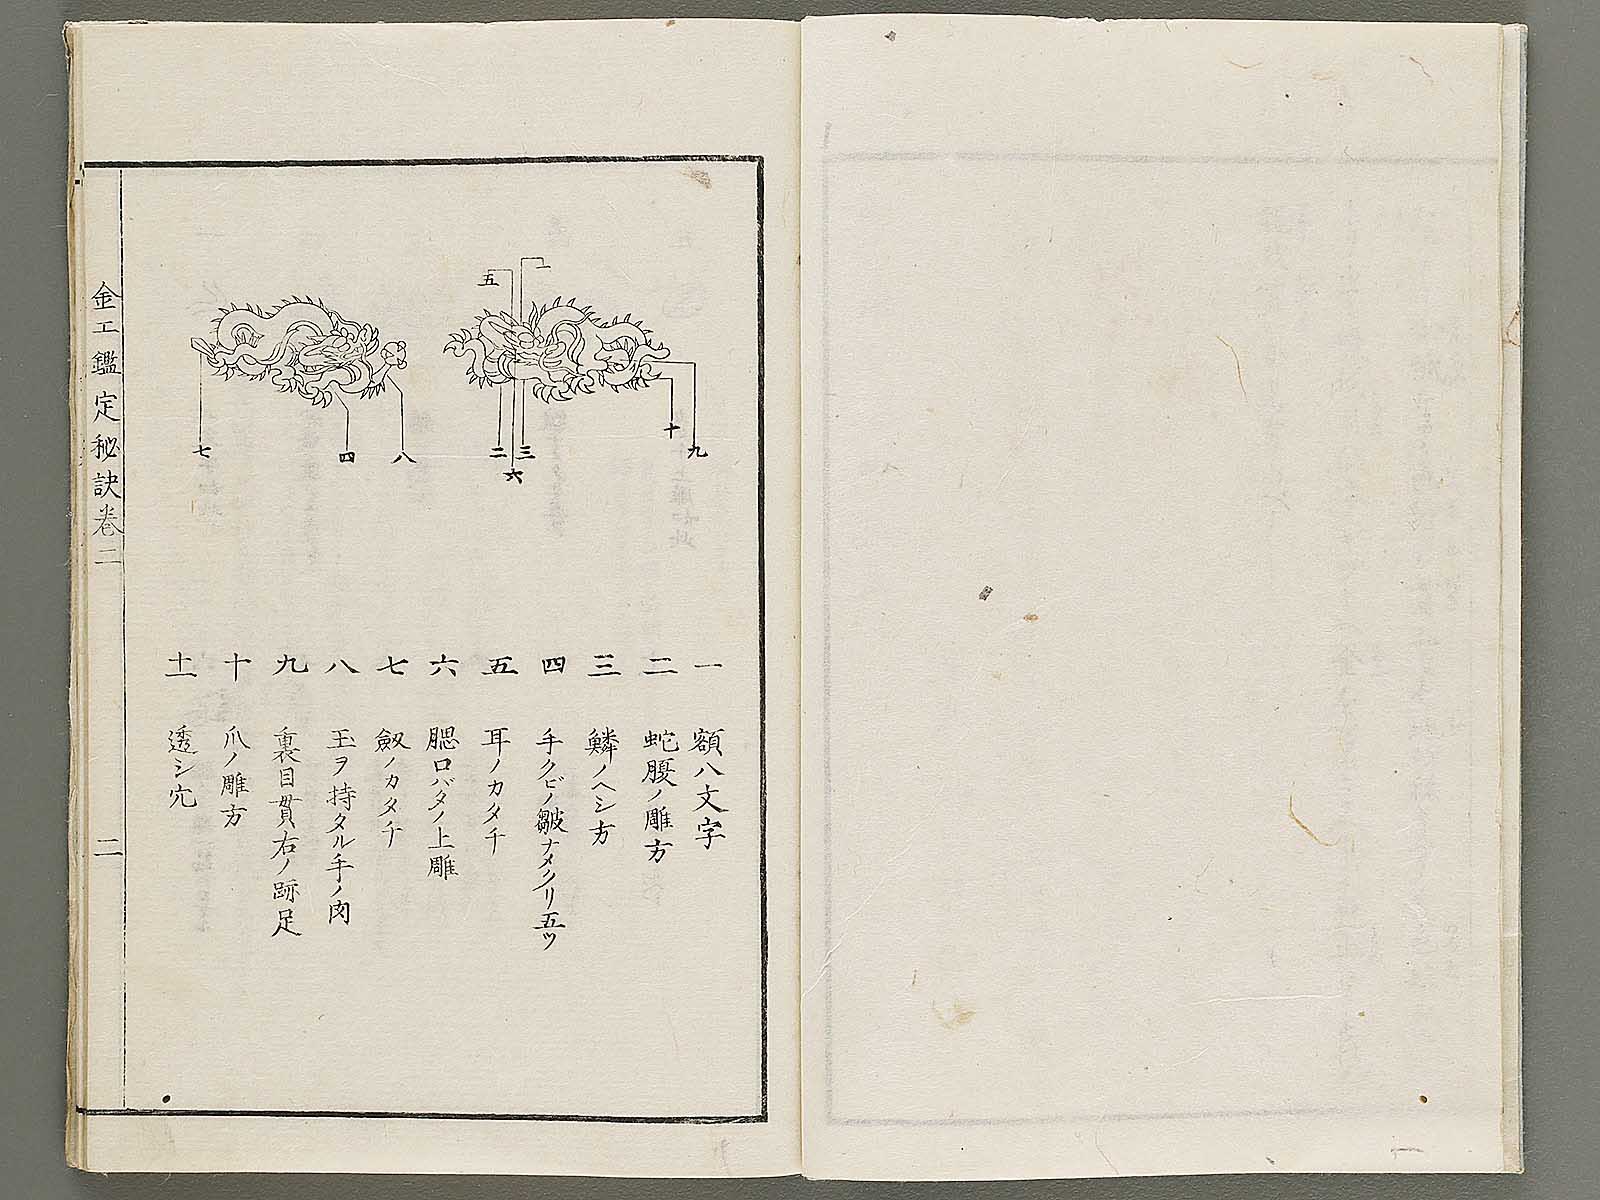 一
五
九
十
三
二
六
八
四
七
一 額八文字
二 蛇腹ノ雕方
三 鱗ノヘシ方
四 手クビノ皺ナメクリ五ツ
五 耳ノカタチ
六 腮口バタノ上雕
七 劔ノカタチ
八 玉ヲ持タル手ノ肉
九 裏目貫右ノ跡足
十 爪ノ雕方
十一 透シ穴
金工鑑定秘訣卷二
二